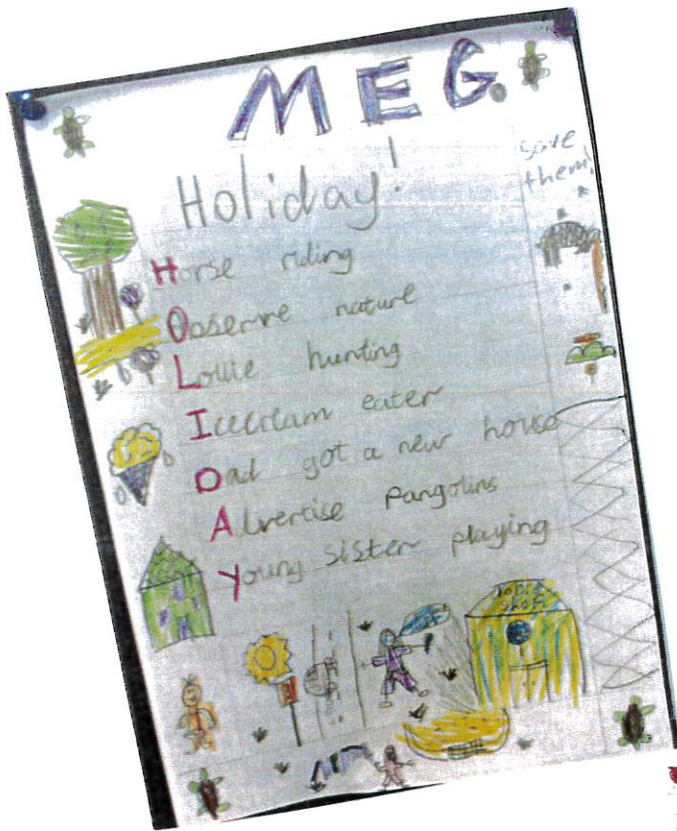 MEG.
save
them!
Holiday!
Horse riding
Observe nature
Lollie hunting
Icecream eater
Dad got a new house
Advertise pangolins
Young sister playing
shop